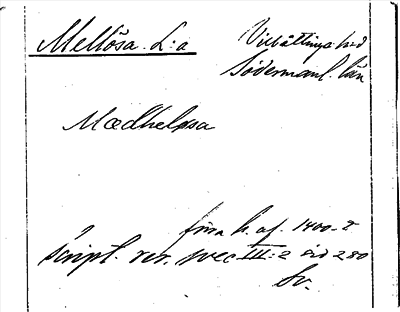 Mellösa L:a
Villåttinge hd
Södermanl. län
Mædheløsa
förra h. af 1400-t
Script. rer. svec III:2 sid 280
Sv.